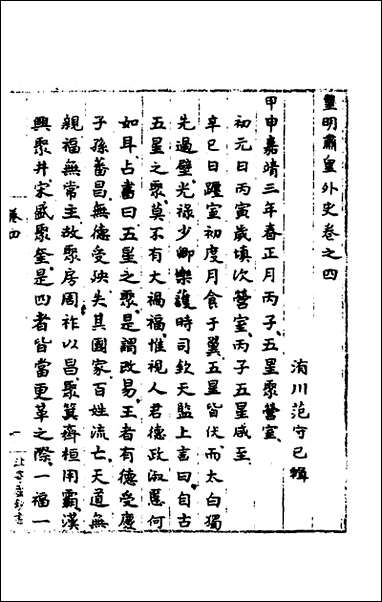 皇明肅皇外史卷之四
洧川范守己輯
甲申嘉靖三年春正月丙子五星聚營室
初元日丙寅歲填次營室丙子五星咸至
辛巳日躔室初度月食于翼五星皆伏而太白獨
先過壁光祿少卿樂頀時司欽天監上言曰自古
五星之聚莫不有大禍福惟視人君德政淑慝何
如耳占書曰五星之聚是謂改易王者有德受慶
子孫蕃昌無德受殃失其國家百姓流亡天道無
親福無常主故聚房周祚以昌聚箕齊桓用霸漢
興聚井宋盛聚奎是四者皆當更革之際一福一
卷四
一